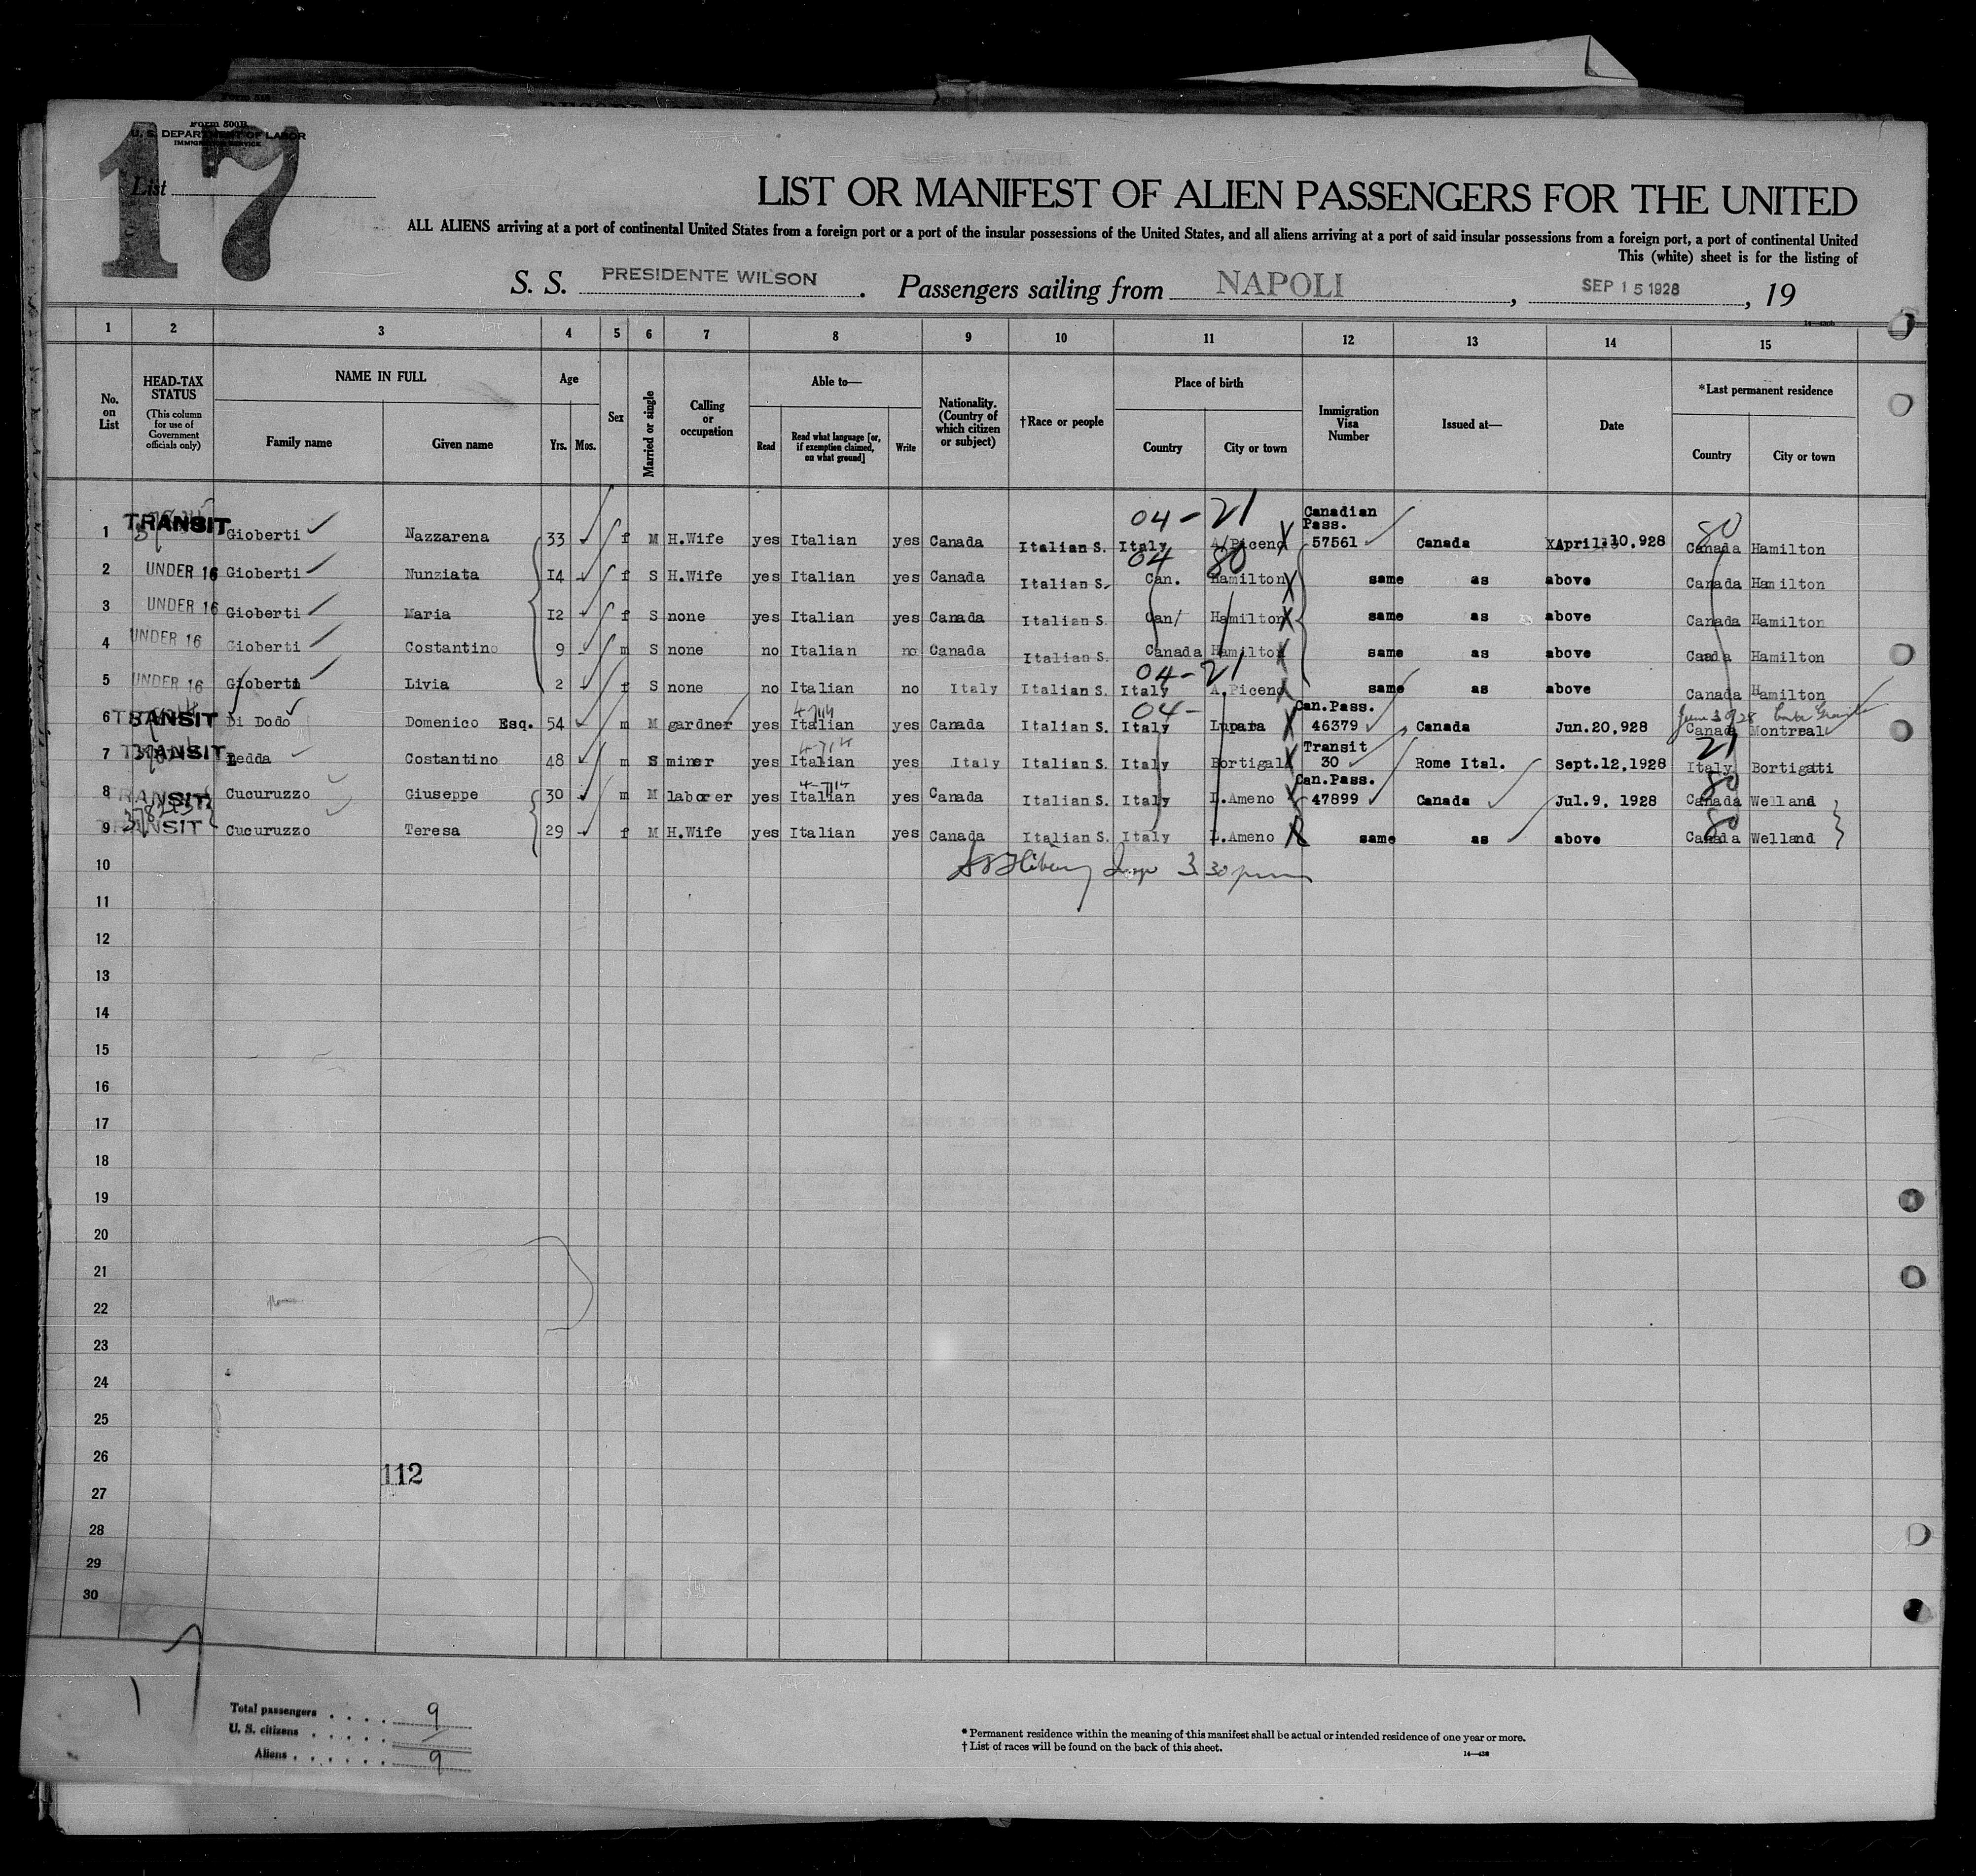 Form 500B
U. S. DEPARTMENT OF LABOR
IMMIGRATION SERVICE
17
List
LIST OR MANIFEST OF ALIEN PASSENGERS FOR THE UNITED
ALL ALIENS arriving at a port of continental United States from a foreign port or a port of the insular possessions of the United States, and all aliens arriving at a port of said insular possessions from a foreign port, a port of continental United
This (white) sheet is for the listing of
S. S. PRESIDENTE WILSON. Passengers sailing from NAPOLI, SEP 15 1928, 19
1 2 3 4 5 6 7 8 9 10 11 12 13 14 15
No. on List
HEAD-TAX STATUS
(This column for use of Government officials only)
NAME IN FULL
Family name
Given name
Age
Yrs. Mos.
Sex
Married or single
Calling or occupation
Able to—
Read
Read what language [or, if exemption claimed, on what ground]
Write
Nationality. (Country of which citizen or subject)
†Race or people
Place of birth
Country
City or town
Immigration Visa Number
Issued at—
Date
*Last permanent residence
Country
City or town
04-21 Canadian Pass. 80
1 TRANSIT Gioberti Nazzarena 33 f M H.Wife yes Italian yes Canada Italian S. Italy A/Piceno 57561 Canada XApril 10,928 Canada Hamilton
04 80
2 UNDER 16 Gioberti Nunziata 14 f S H.Wife yes Italian yes Canada Italian S. Can. Hamilton same as above Canada Hamilton
3 UNDER 16 Gioberti Maria 12 f S none yes Italian yes Canada Italian S. Can/ Hamilton same as above Canada Hamilton
4 UNDER 16 Gioberti Costantino 9 m S none no Italian no Canada Italian S. Canada Hamilton same as above Canada Hamilton
04-21
5 UNDER 16 Gioberti Livia 2 f S none no Italian no Italy Italian S. Italy A.Piceno same as above Canada Hamilton
4-7114 04- Can.Pass. June 30/28
6 TRANSIT Di Dodo Domenico Esq. 54 m M gardner yes Italian yes Canada Italian S. Italy Lupara 46379 Canada Jun.20,928 Canada Montreal
4-714 Transit 21
7 TRANSIT Ledda Costantino 48 m S miner yes Italian yes Italy Italian S. Italy Bortigal 30 Rome Ital. Sept.12,1928 Italy Bortigatti
4-7114 Can.Pass. 80
8 TRANSIT Cucuruzzo Giuseppe 30 m M laborer yes Italian yes Canada Italian S. Italy L.Ameno 47899 Canada Jul.9, 1928 Canada Welland
80
9 TRANSIT Cucuruzzo Teresa 29 f M H.Wife yes Italian yes Canada Italian S. Italy L.Ameno same as above Canada Welland
10 3.30 pm
11
12
13
14
15
16
17
18
19
20
21
22
23
24
25
26
112
27
28
29
30
Total passengers . . . . 9
U. S. citizens . . . . .
Aliens . . . . . . 9
* Permanent residence within the meaning of this manifest shall be actual or intended residence of one year or more.
† List of races will be found on the back of this sheet.
14—438